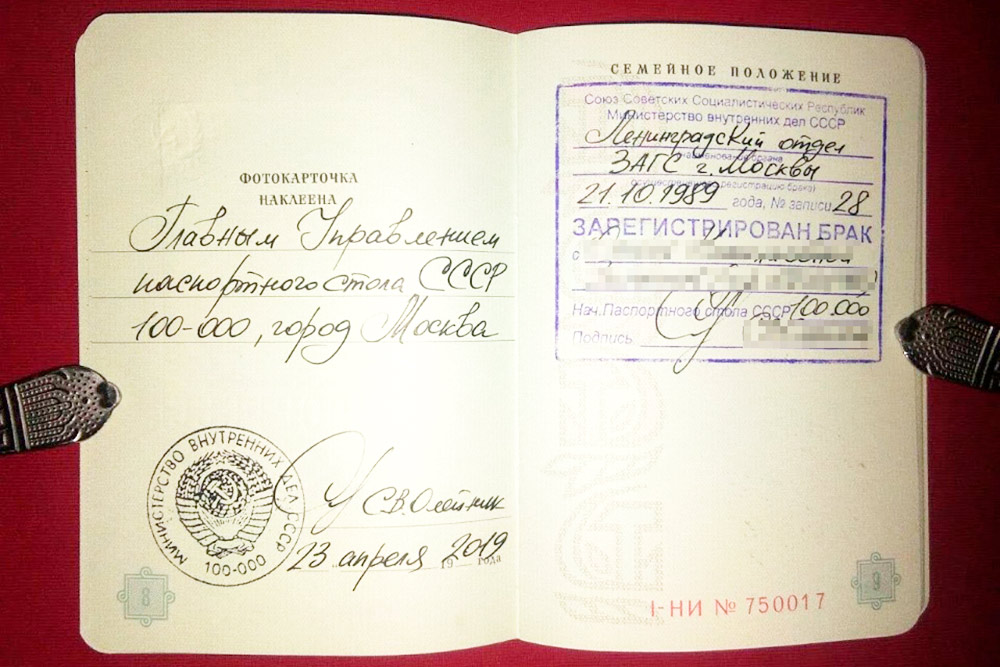 ФОТОКАРТОЧКА
НАКЛЕЕНА
Главным Управлением
паспортного стола СССР
100-000, город Москва
МИНИСТЕРСТВО ВНУТРЕННИХ ДЕЛ СССР
100-000
С.В. Олейник
23 апреля 2019
19 года
8
СЕМЕЙНОЕ ПОЛОЖЕНИЕ
Союз Советских Социалистических Республик
Министерство внутренних дел СССР
Ленинградский отдел
ЗАГС г. Москвы
21.10.1989 года, № записи 28
ЗАРЕГИСТРИРОВАН БРАК
с
Нач. Паспортного стола СССР 100.000
Подпись:
I-НИ № 750017
9